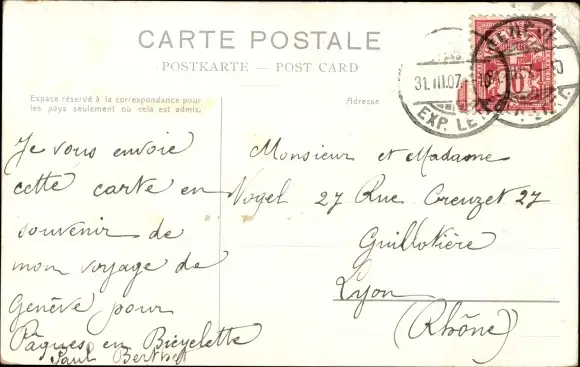 CARTE POSTALE
POSTKARTE — POST CARD
Espace réservé à la correspondance pour
les pays seulement où cela est admis.
Adresse
31.III.07
EXP. LE
Je vous envoie
cette carte en
souvenir de
mon voyage de
Genève, pour
Pâques en Bicyclette
Paul Berthet
Monsieur et Madame
Vogel 27 Rue Creuzet 27
Guillotière
Lyon
(Rhône)